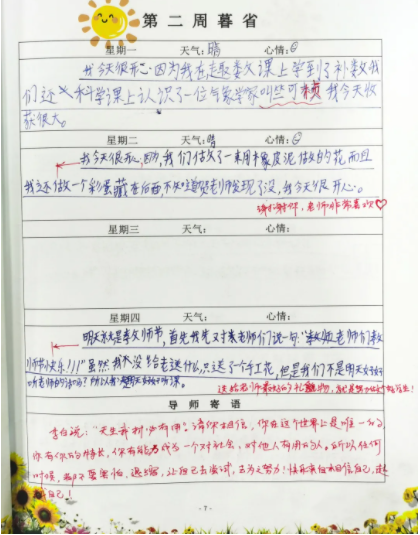 第二周暮省
星期一 天气:晴 心情:
我今天很开心因为我在是数文课上学到了补数我
们还 科学课上认识了一位气象学家叫竺可桢 我今天收
获很大。
星期二 天气:晴 心情:
我今天很开心,因为,我们做了一束用橡皮泥做的花而且
我还做一个彩蛋藏在后面不知道贺老师发现了没,我今天很开心。
谢谢你,老师非常喜欢
星期三 天气: 心情:
星期四 天气: 心情:
明天就是教师节,首先我先对老师们说一句"教师老师们教
师节快乐!!!"虽然我没给老送什么,只送了个手工花,但是我们不是用天
听老师的 听课。
这是给老师最好的礼物,
导师寄语
李白说:"天生我材必有用。"请你相信,你在这个世界上是唯一的,
你有你的特长,你有能力成为一个对社会、对他人有用的人。所以任何
时候,都不要害怕、退缩,让自己去尝试,去为之努力!快乐来自相信自己,
自己!
- 7 -